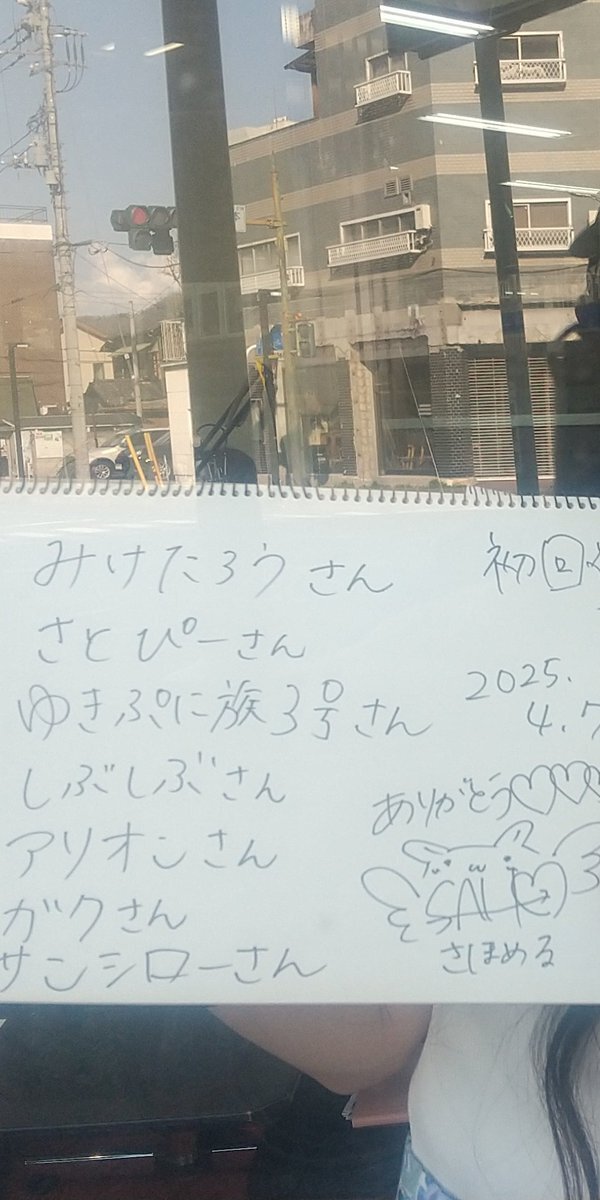 みけたろうさん
さとぴーさん
ゆきぷに族3号さん
しぶしぶさん
アリオンさん
ガクさん
サンシローさん
初回
2025.
4.7
ありがとう♡♡♡
SAHO
さほめる